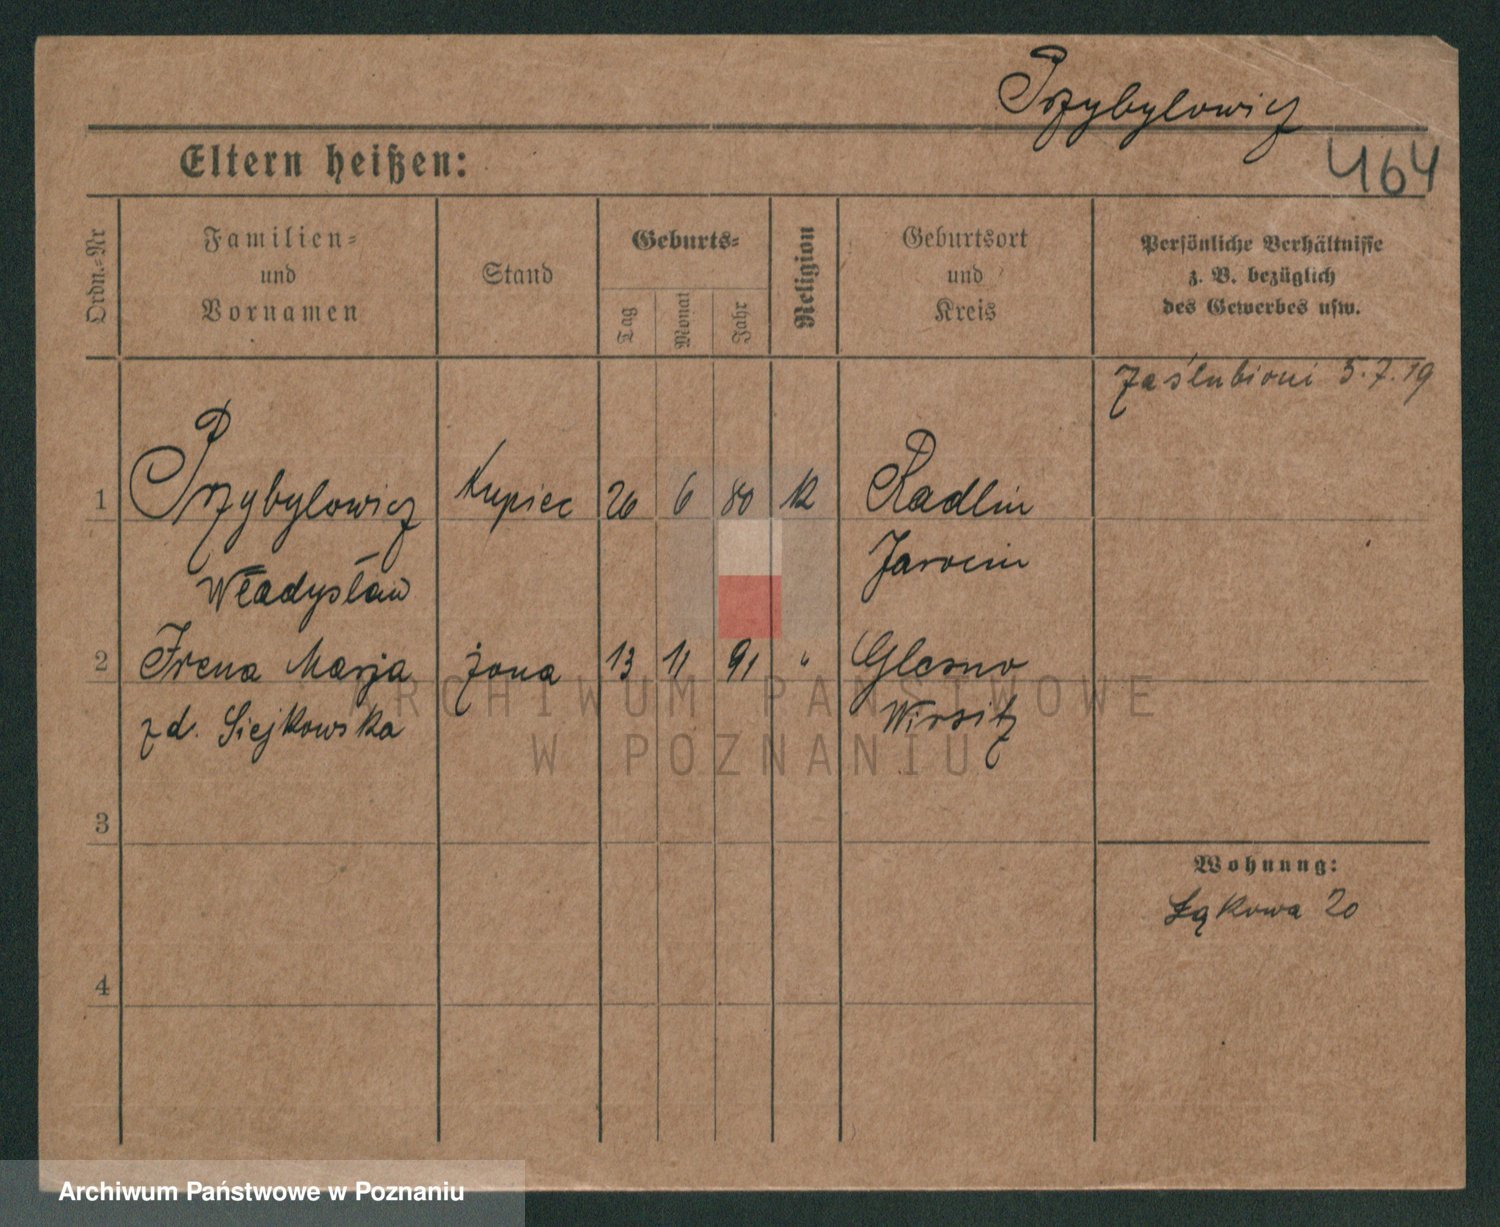 Przybylowicz
Eltern heißen:
464
Ordn.-Nr
Familien-
und
Vornamen
Stand
Geburts-
Tag
Monat
Jahr
Religion
Geburtsort
und
Kreis
Persönliche Verhältnisse
z. B. bezüglich
des Gewerbes usw.
Zaślubieni 5.7.19
1 Przybylowicz Kupiec 26 6 80 K Radlin
Władysław Jarocin
2 Irena Marja żona 13 11 91 " Glesno
zd. Siejkowska Wirsitz
ARCHIWUM PAŃSTWOWE
W POZNANIU
3
Wohnung:
Łąkowa 20
4
Archiwum Państwowe w Poznaniu